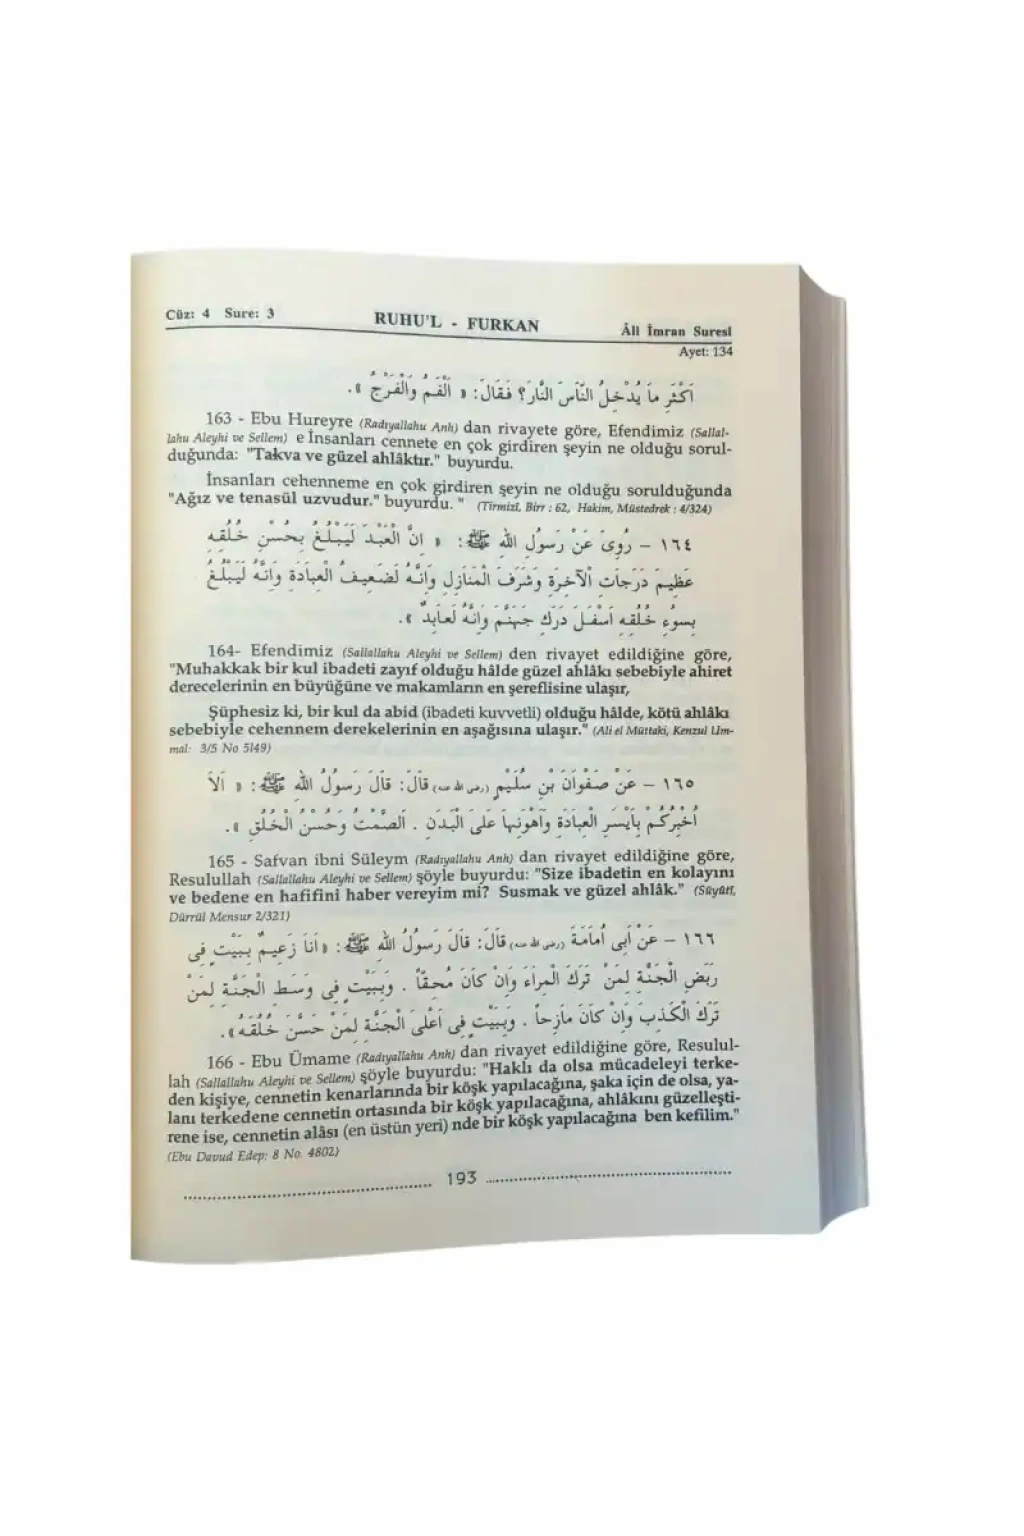 Cüz: 4 Sure: 3
RUHU'L - FURKAN
Âli İmran Suresi
Ayet: 134
اَكْثَرِ مَا يُدْخِلُ النَّاسَ النَّارَ؟ فَقَالَ: « اَلْفَمُ وَالْفَرْجُ ».
163 - Ebu Hureyre (Radıyallahu Anh) dan rivayete göre, Efendimiz (Sallal-
lahu Aleyhi ve Sellem) e İnsanları cennete en çok girdiren şeyin ne olduğu sorul-
duğunda: "Takva ve güzel ahlâktır." buyurdu.
İnsanları cehenneme en çok girdiren şeyin ne olduğu sorulduğunda
"Ağız ve tenasül uzvudur." buyurdu. " (Tirmizî, Birr : 62, Hakim, Müstedrek : 4/324)
١٦٤ – رُوِىَ عَنْ رَسُولِ اللهِ ﷺ: « اِنَّ الْعَبْدَ لَيَبْلُغُ بِحُسْنِ خُلُقِهِ
عَظِيمَ دَرَجَاتِ اْلآخِرَةِ وَشَرَفَ الْمَنَازِلِ وَاِنَّهُ لَضَعِيفُ الْعِبَادَةِ وَاِنَّهُ لَيَبْلُغُ
بِسُوءِ خُلُقِهِ اَسْفَلَ دَرَكِ جَهَنَّمَ وَاِنَّهُ لَعَابِدٌ ».
164- Efendimiz (Sallallahu Aleyhi ve Sellem) den rivayet edildiğine göre,
"Muhakkak bir kul ibadeti zayıf olduğu hâlde güzel ahlâkı sebebiyle ahiret
derecelerinin en büyüğüne ve makamların en şereflisine ulaşır,
Şüphesiz ki, bir kul da abid (ibadeti kuvvetli) olduğu hâlde, kötü ahlâkı
sebebiyle cehennem derekelerinin en aşağısına ulaşır." (Ali el Müttaki, Kenzul Um-
mal: 3/5 No 5149)
١٦٥ – عَنْ صَفْوَانَ بْنِ سُلَيْمٍ (رضى الله عنه) قَالَ: قَالَ رَسُولُ اللهِ ﷺ: « اَلاَ
اُخْبِرُكُمْ بِاَيْسَرِ الْعِبَادَةِ وَاَهْوَنِهَا عَلَى الْبَدَنِ . اَلصَّمْتُ وَحُسْنُ الْخُلُقِ ».
165 - Safvan ibni Süleym (Radıyallahu Anh) dan rivayet edildiğine göre,
Resulullah (Sallallahu Aleyhi ve Sellem) şöyle buyurdu: "Size ibadetin en kolayını
ve bedene en hafifini haber vereyim mi? Susmak ve güzel ahlâk." (Süyûtî,
Dürrül Mensur 2/321)
١٦٦ – عَنْ اَبِى اُمَامَةَ (رضى الله عنه) قَالَ: قَالَ رَسُولُ اللهِ ﷺ: « اَنَا زَعِيمٌ بِبَيْتٍ فِى
رَبَضِ الْجَنَّةِ لِمَنْ تَرَكَ الْمِرَاءَ وَاِنْ كَانَ مُحِقًّا . وَبِبَيْتٍ فِى وَسَطِ الْجَنَّةِ لِمَنْ
تَرَكَ الْكَذِبَ وَاِنْ كَانَ مَازِحاً . وَبِبَيْتٍ فِى اَعْلَى الْجَنَّةِ لِمَنْ حَسَّنَ خُلُقَهُ ».
166 - Ebu Ümame (Radıyallahu Anh) dan rivayet edildiğine göre, Resulul-
lah (Sallallahu Aleyhi ve Sellem) şöyle buyurdu: "Haklı da olsa mücadeleyi terke-
den kişiye, cennetin kenarlarında bir köşk yapılacağına, şaka için de olsa, ya-
lanı terkedene cennetin ortasında bir köşk yapılacağına, ahlâkını güzelleşti-
rene ise, cennetin alâsı (en üstün yeri) nde bir köşk yapılacağına ben kefilim."
(Ebu Davud Edep: 8 No. 4802)
193